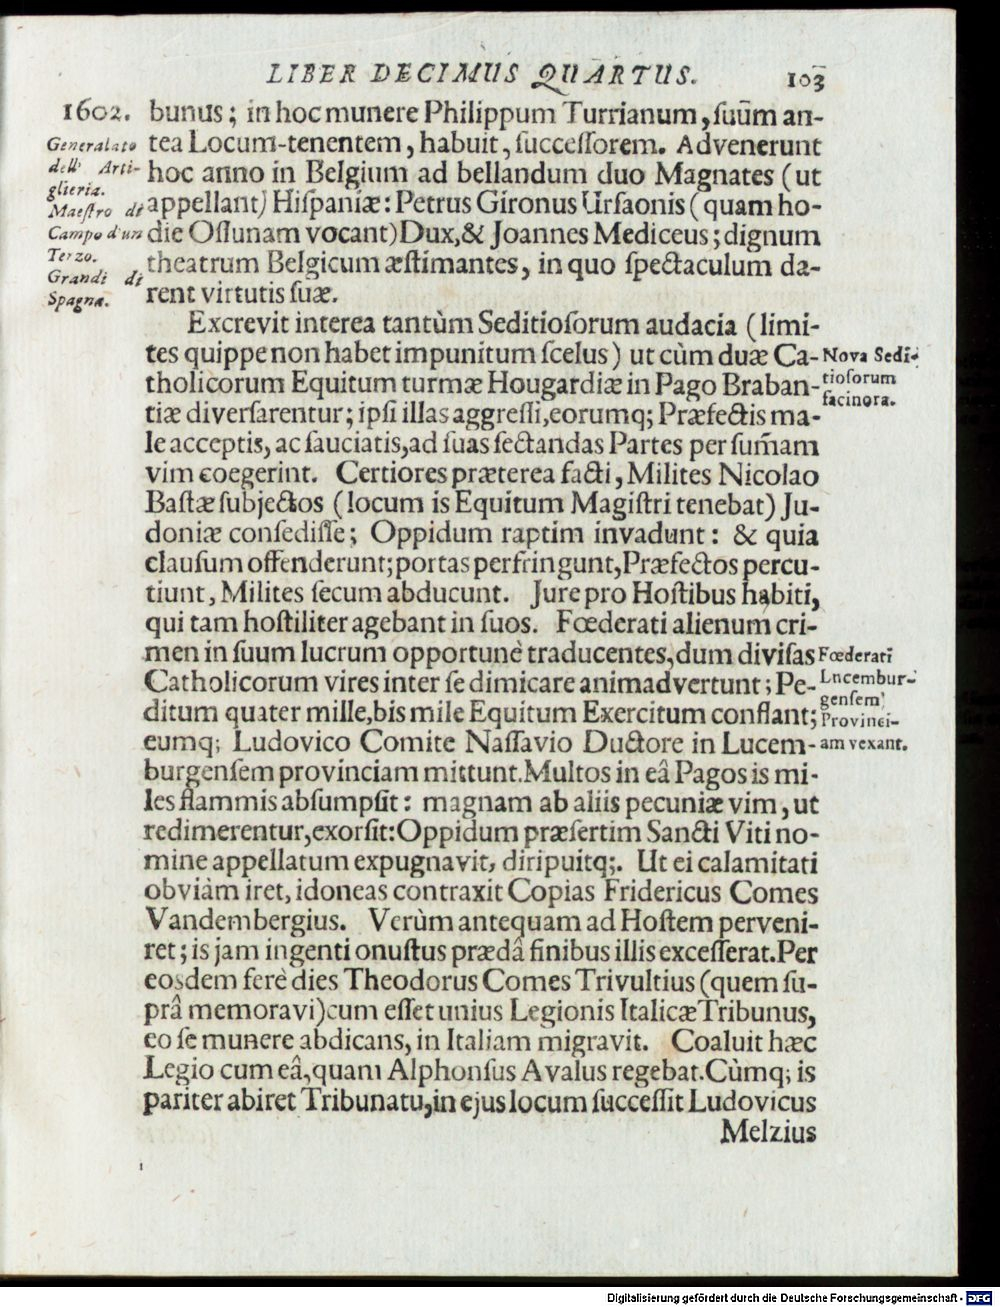 LIBER DECIMUS QUARTUS. 103
1602.
Generalato
dell' Arti-
glieria.
Maeſtro di
Campo d'un
Terzo.
Grandi di
Spagna.
bunus; in hoc munere Philippum Turrianum, ſuūm an-
tea Locum-tenentem, habuit, ſucceſſorem. Advenerunt
hoc anno in Belgium ad bellandum duo Magnates (ut
appellant) Hiſpaniæ: Petrus Gironus Urſaonis (quam ho-
die Oſſunam vocant) Dux, & Joannes Mediceus; dignum
theatrum Belgicum æſtimantes, in quo ſpectaculum da-
rent virtutis ſuæ.
Excrevit interea tantùm Seditioſorum audacia (limi-
tes quippe non habet impunitum ſcelus) ut cùm duæ Ca-
tholicorum Equitum turmæ Hougardiæ in Pago Braban-
tiæ diverſarentur; ipſi illas aggreſſi, eorumq; Præfectis ma-
le acceptis, ac ſauciatis, ad ſuas ſectandas Partes per ſum̄am
vim coegerint. Certiores præterea facti, Milites Nicolao
Baſtæ ſubjectos (locum is Equitum Magiſtri tenebat) Ju-
doniæ conſediſſe; Oppidum raptim invadunt: & quia
clauſum offenderunt; portas perfringunt, Præfectos percu-
tiunt, Milites ſecum abducunt. Jure pro Hoſtibus habiti,
qui tam hoſtiliter agebant in ſuos. Fœderati alienum cri-
men in ſuum lucrum opportunè traducentes, dum diviſas
Catholicorum vires inter ſe dimicare animadvertunt; Pe-
ditum quater mille, bis mile Equitum Exercitum conflant;
eumq; Ludovico Comite Naſſavio Ductore in Lucem-
burgenſem provinciam mittunt. Multos in eâ Pagos is mi-
les flammis abſumpſit: magnam ab aliis pecuniæ vim, ut
redimerentur, exorſit: Oppidum præſertim Sancti Viti no-
mine appellatum expugnavit, diripuitq;. Ut ei calamitati
obviàm iret, idoneas contraxit Copias Fridericus Comes
Vandembergius. Verùm antequam ad Hoſtem perveni-
ret; is jam ingenti onuſtus prædâ finibus illis exceſſerat. Per
eosdem ferè dies Theodorus Comes Trivultius (quem ſu-
prâ memoravi) cum eſſet unius Legionis Italicæ Tribunus,
eo ſe munere abdicans, in Italiam migravit. Coaluit hæc
Legio cum eâ, quam Alphonſus Avalus regebat. Cùmq; is
pariter abiret Tribunatu, in ejus locum ſucceſſit Ludovicus
Melzius
Nova Sedi-
tioſorum
facinora.
Fœderati
Lncembur-
genſem
Provinci-
am vexant.
Digitalisierung gefördert durch die Deutsche Forschungsgemeinschaft - DFG